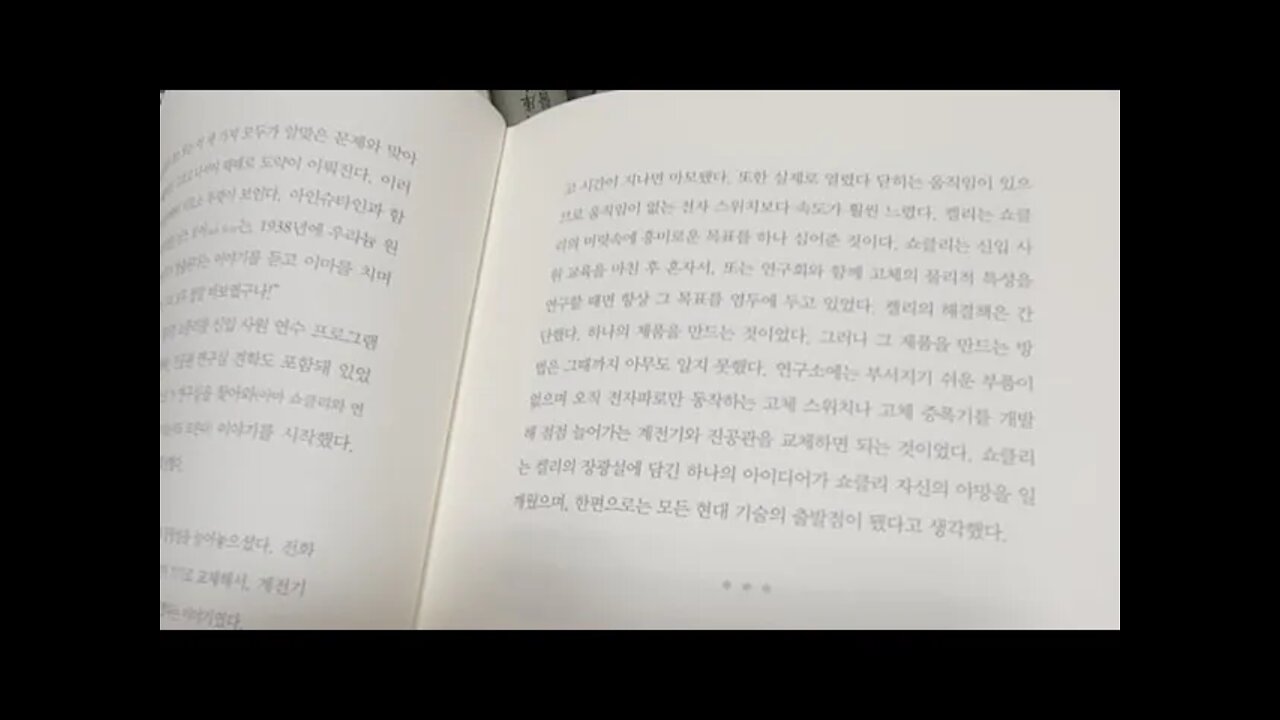 모두가 알맞은 문제와 맞아
도약이 이뤄진다. 이러
보인다. 아인슈타인과 함
는, 1938년에 우라늄 원
이야기를 듣고 이마를 치며
바보였구나!"
신입 사원 연수 프로그램
연구실 견학도 포함돼 있었
연구실을 찾아와 쇼클리와 연
이야기를 시작했다.
늘어놓으셨다. 전화
교체해서, 계전기
이야기였다.
고 시간이 지나면 마모됐다. 또한 실제로 열렸다 닫히는 움직임이 있으
므로 움직임이 없는 전자 스위치보다 속도가 훨씬 느렸다. 켈리는 쇼클
리의 머릿속에 흥미로운 목표를 하나 심어준 것이다. 쇼클리는 신입 사
원 교육을 마친 후 혼자서, 또는 연구회와 함께 고체의 물리적 특성을
연구할 때면 항상 그 목표를 염두에 두고 있었다. 켈리의 해결책은 간
단했다. 하나의 제품을 만드는 것이었다. 그러나 그 제품을 만드는 방
법은 그때까지 아무도 알지 못했다. 연구소에는 부서지기 쉬운 부품이
없으며 오직 전자파로만 동작하는 고체 스위치나 고체 증폭기를 개발
해 점점 늘어가는 계전기와 진공관을 교체하면 되는 것이었다. 쇼클리
는 켈리의 장광설에 담긴 하나의 아이디어가 쇼클리 자신의 야망을 일
깨웠으며, 한편으로는 모든 현대 기술의 출발점이 됐다고 생각했다.